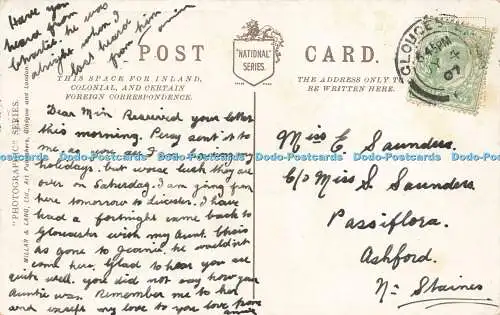 Have you
heard from
Charlie. he was
alright when I
last heard him
from
POST CARD
"NATIONAL"
SERIES.
THIS SPACE FOR INLAND,
COLONIAL, AND CERTAIN
FOREIGN CORRESPONDENCE.
THE ADDRESS ONLY TO
BE WRITTEN HERE.
GLOUCESTER
6.45PM
07
"PHOTOGRAPHIC" SERIES.
MILLAR & LANG, Ltd., Art Publishers, Glasgow and London
Dear Min Received your letter
this morning. Percy sent it to
me, as you see I am having my
holidays. but worse luck they are
over on Saturday. I am going from
here tomorrow to Leicester. I have
had a fortnight came back to
Gloucester with my Aunt. Chris
as gone to Jeanie. he wouldn't
come here. Glad to hear you are
quite well. you did not say how your
Auntie was. Remember me to her
and except my love to you love from
Annie
Miss E. Saunders.
C/o Miss S. Saunders
Passiflora.
Ashford.
Nr Staines
Dado-Postcards Dado-Postcards Dado-Postcards Dado-Postcards Dado-Postcards